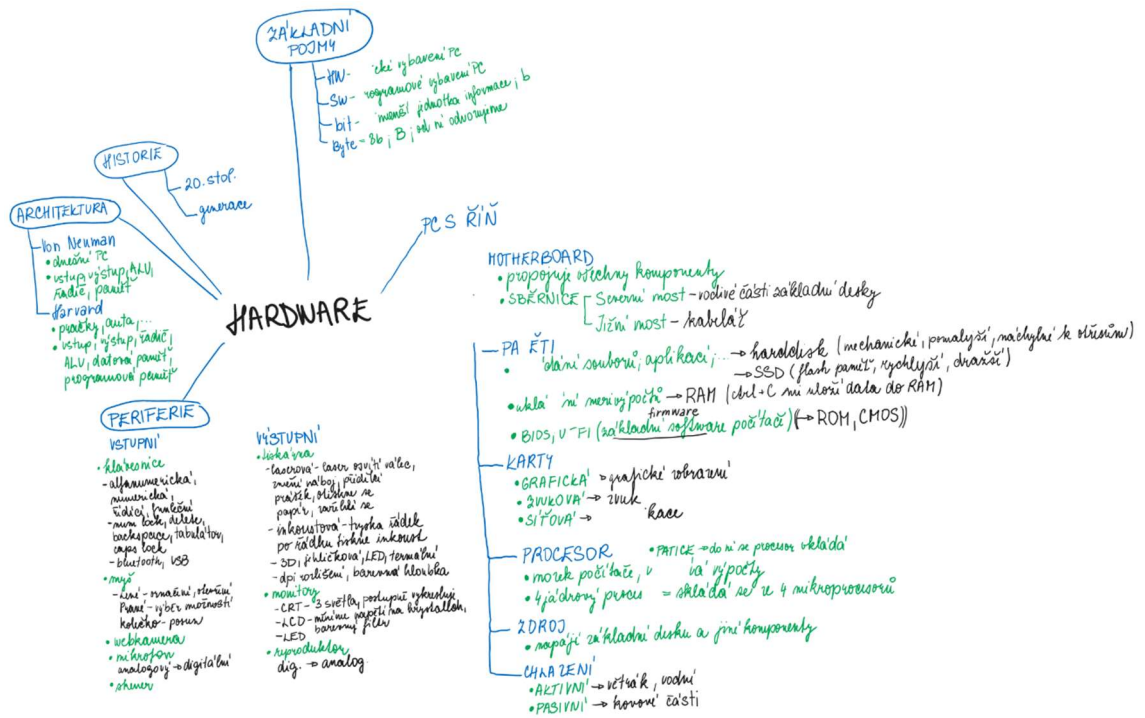 ZÁKLADNÍ
POJMY
HW- cké vybavení PC
SW- rogramové vybavení PC
bit- menší jednotka informace, b
Byte = 8b, B, od ní odvozujeme
HISTORIE
20. stol.
generace
ARCHITEKTURA
Von Neuman
• dnešní PC
• vstup, výstup, ALU,
řadič, paměť
Harvard
• pračky, auta, ...
• vstup, výstup, řadič,
ALU, datová paměť,
programová paměť
HARDWARE
PERIFERIE
VSTUPNÍ
• klávesnice
- alfanumerická,
numerická,
řídící, funkční
- num lock, delete,
backspace, tabulátor,
caps lock
- bluetooth, USB
• myš
- Levé - označení, otevření
Pravé - výběr možností
kolečko - posun
• webkamera
• mikrofon
analogový → digitální
• skener
VÝSTUPNÍ
• tiskárna
- laserová - laser osvítí válec,
změní náboj, přidělí
prášek, otiskne se
papír, zažehlí se
- inkoustová - tryska řádek
po řádku tiskne inkoust
- 3D, jehličková, LED, termální
- dpi rozlišení, barevná hloubka
• monitory
- CRT - 3 světla, postupně vykreslují
- LCD - měníme napětí na krystalech,
- LED barevný filter
• reproduktor
dig. → analog
PC S ŘÍŇ
MOTHERBOARD
• propojuje všechny komponenty
• SBĚRNICE Severní most - vodivé části základní desky
Jižní most - kabeláž
PA ĚTI
• dání souborů, aplikací, ... → harddisk (mechanické, pomalejší, náchylné k otřesům)
→ SSD (flash paměť, rychlejší, dražší)
• uklá ní mezivýpočtů → RAM (ctrl+C mi uloží data do RAM)
firmware
• BIOS, U FI (základní software počítače) (→ ROM, CMOS))
KARTY
• GRAFICKÁ → grafické zobrazení
• ZVUKOVÁ → zvuk
• SÍŤOVÁ → kace
PROCESOR • PATICE → do ní se procesor vkládá
• mozek počítače, v vá výpočty
• 4 jádrový proces = skládá se ze 4 mikroprocesorů
ZDROJ
• napájí základní desku a jiné komponenty
CHLAZENÍ
• AKTIVNÍ → větrák, vodní
• PASIVNÍ → kovové části